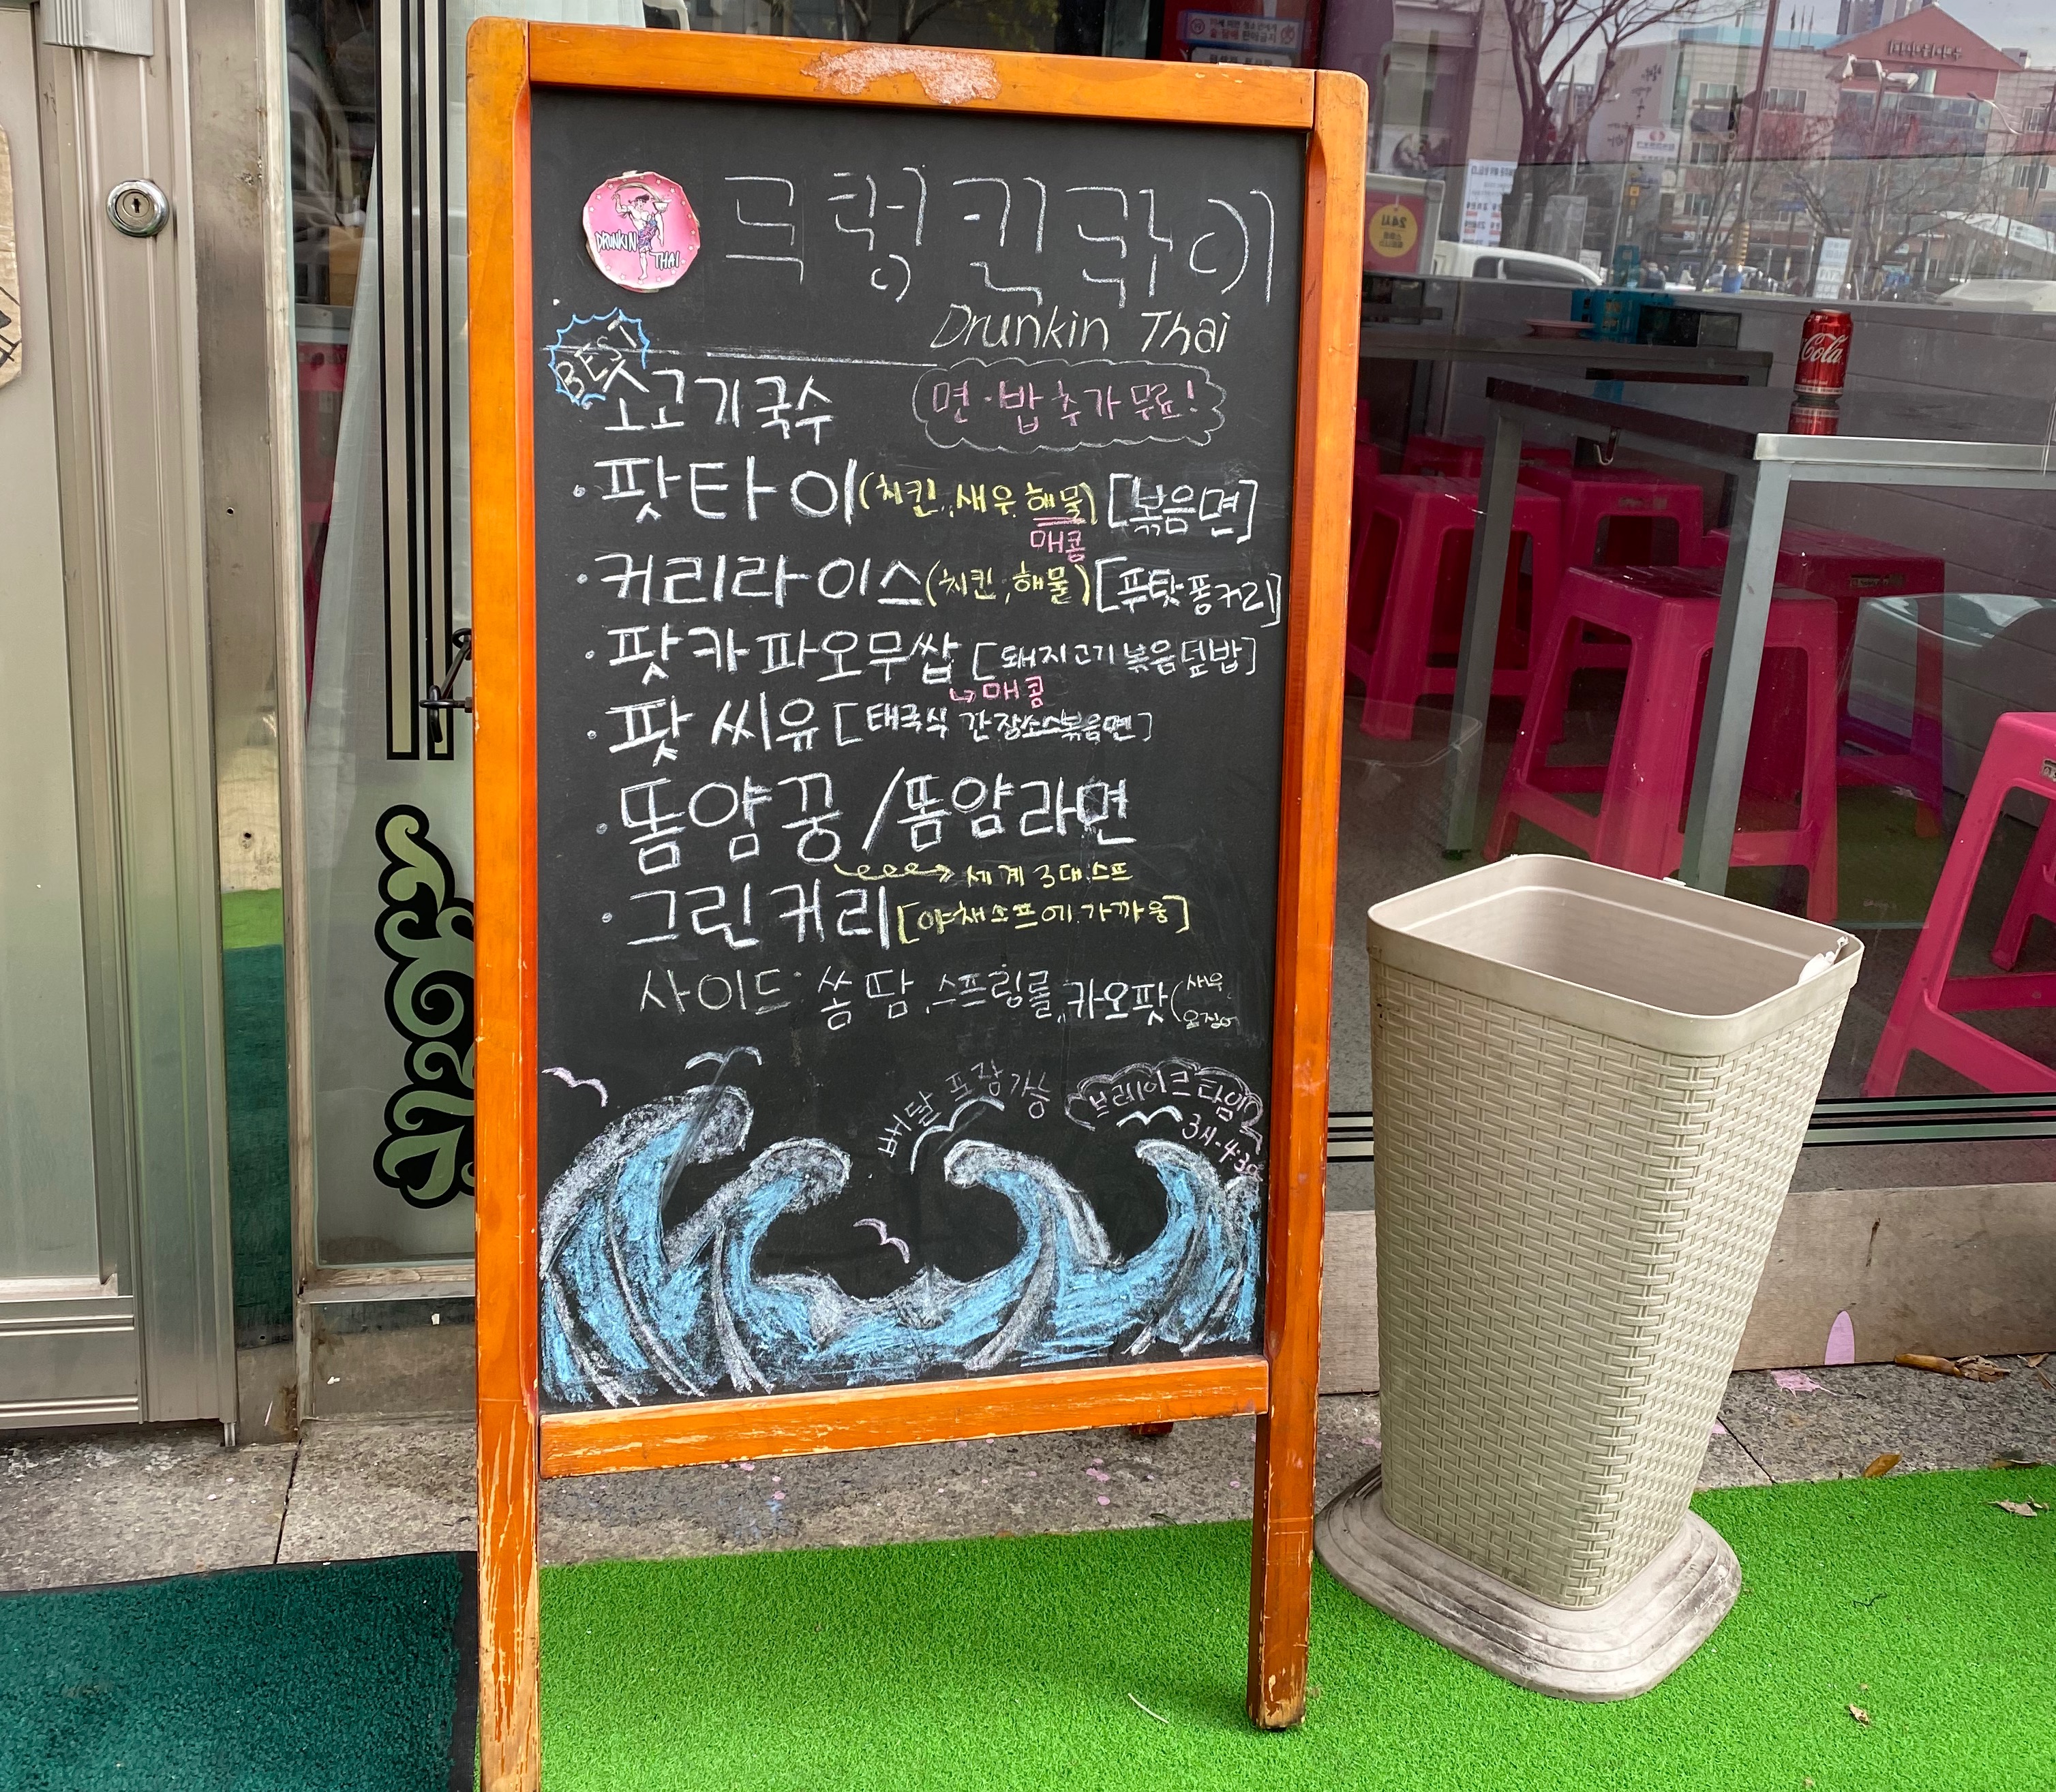 DRUNKIN THAI
드렁킨타이
Drunkin Thai
BEST
소고기국수
면·밥 추가 무료!
·팟타이(치킨, 새우, 해물) [볶음면]
매콤
·커리라이스(치킨, 해물) [푸팟퐁커리]
·팟카파오무쌉 [돼지고기볶음덮밥]
↳매콤
·팟씨유 [태국식 간장소스볶음면]
·똠얌꿍/똠얌라면
세계 3대 스프
·그린커리 [야채스프에 가까움]
사이드: 쏨땀, 스프링롤, 카오팟(새우
오징어
배달 포장가능
브레이크타임
3시-4:30
Cola
24시